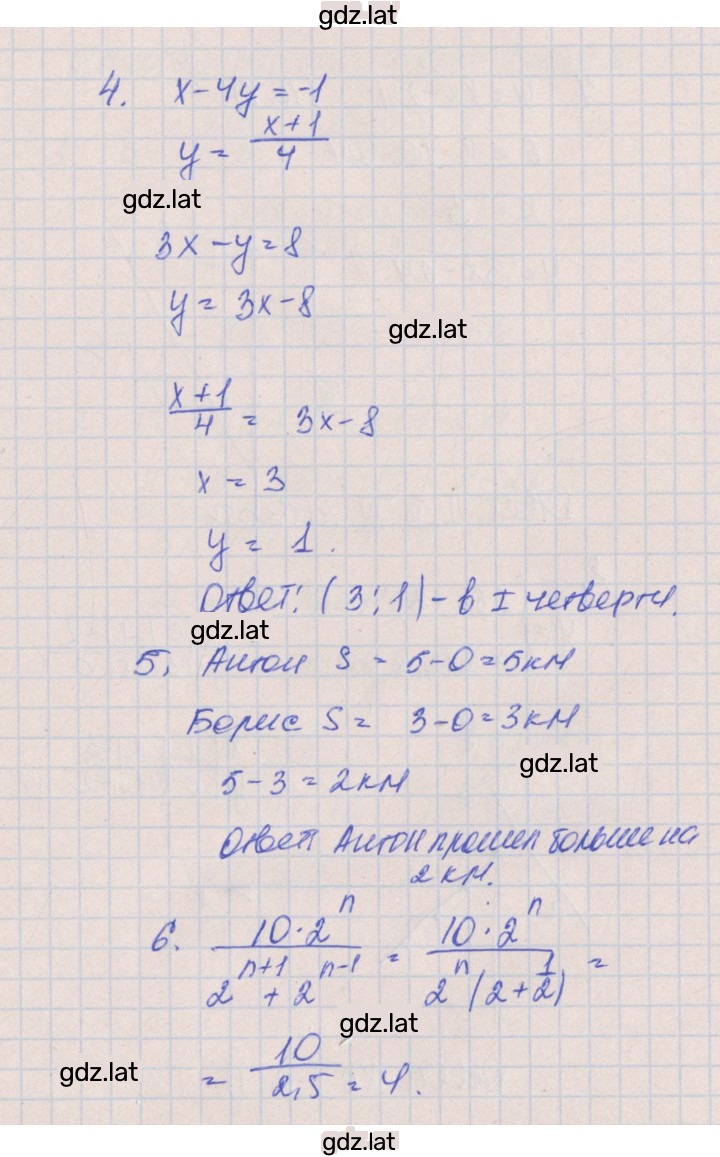 gdz.lat
4. x-4y=-1
y = (x+1)/4
gdz.lat
3x-y=8
y = 3x-8
gdz.lat
(x+1)/4 = 3x-8
x = 3
y = 1.
Ответ: (3;1) - в I четверти.
gdz.lat
5. Антон S = 5-0=5км
Борис S = 3-0=3км
gdz.lat
5-3=2км
Ответ Антон прошел больше на
2км.
6. (10·2^n)/(2^(n+1)+2^(n-1)) = (10·2^n)/(2^n(2+1/2)) =
gdz.lat
= 10/2,5 = 4.
gdz.lat
gdz.lat